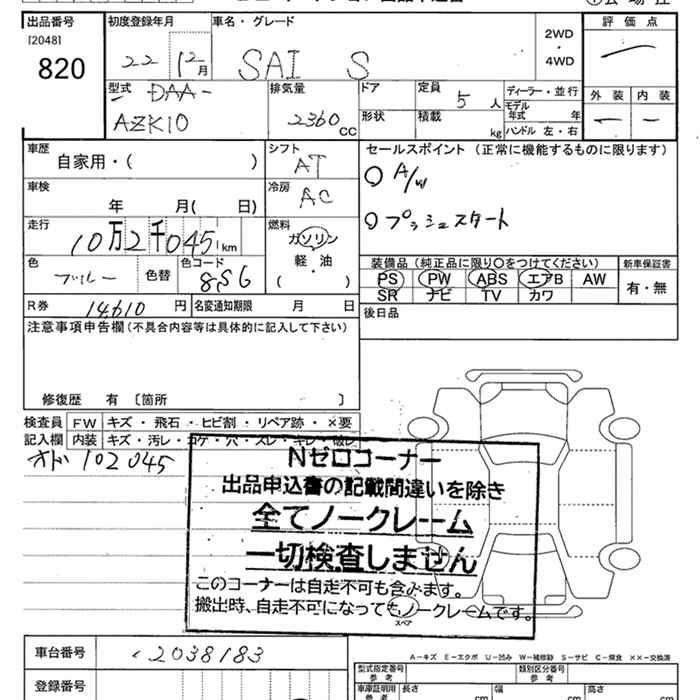 出品番号 初度登録年月 車名・グレード 評価点
[2048]
820
22 12月 SAI S 2WD・4WD ー
外装 内装
ー ー
型式 DAA- 排気量 ドア 定員 5人 ディーラー・並行
AZK10 2360CC 形状 積載 kg モデル年式 年
ハンドル 左・右
車歴 シフト セールスポイント(正常に機能するものに限ります)
自家用・( ) AT ○ A/W
車検 冷房
年 月( 日) AC ○ プッシュスタート
走行 燃料
10万2千045km ガソリン
軽・油
( )
色 色替 色コード 装備品(純正品に限り○をつけてください) 新車保証書
ブルー 8S6 PS PW ABS エアB AW 有・無
SR ナビ TV カワ
R券 14610円 名変通知期限 月 日 後日品
注意事項申告欄(不具合内容等は具体的に記入して下さい)
修復歴 有 〔箇所 〕
検査員 FW キズ・飛石・ヒビ割・リペア跡・×要
記入欄 内装 キズ・汚レ・コゲ・穴・スレ・キレ・破レ
オド 102045
Nゼロコーナー
出品申込書の記載間違いを除き
全てノークレーム
一切検査しません
このコーナーは自走不可も含みます。
搬出時、自走不可になってもノークレームです。
スペア
A-キズ E-エクボ U-凹み W-補修跡 S-サビ C-腐食 ××-交換済
車台番号 2038183 型式指定番号 参考 類別区分番号 参考
登録番号 車庫証明用 参考 長さ cm 幅 cm 高さ cm